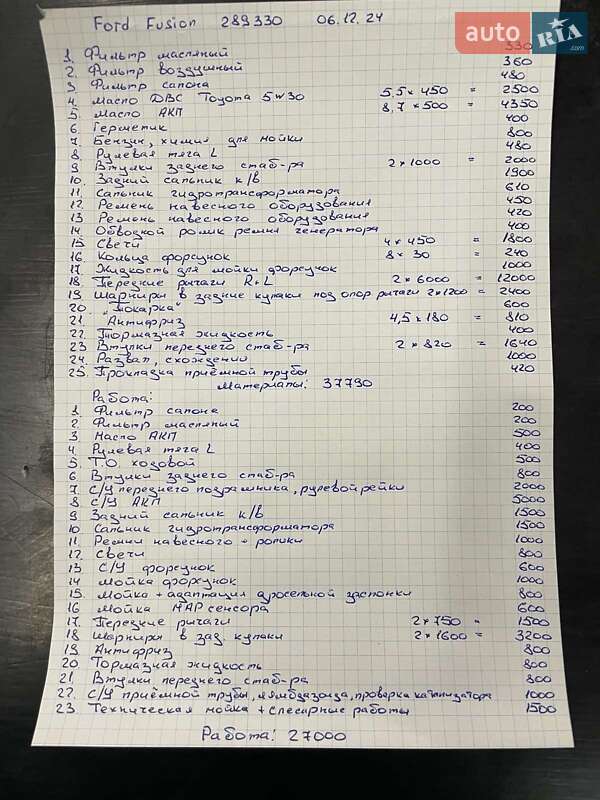 auto RIA .com
Ford Fusion 289330 06.12.24
1. Фильтр масляный 330
2. Фильтр воздушный 360
3 Фильтр салона 480
4. Масло ДВС Toyota 5w30 5,5 x 450 = 2500
5. Масло АКП 8,7 x 500 = 4350
6. Герметик 400
7. Бензин, химия для мойки 800
8. Рулевая тяга L 480
9 Втулки заднего стаб-ра 2 x 1000 = 2000
10. Задний сальник к/в 1900
11. Сальник гидротрансформатора 610
12. Ремень навесного оборудования 450
13 Ремень навесного оборудования 420
14 Обводной ролик ремня генератора 400
15 Свечи 4 x 450 = 1800
16. Кольца форсунок 8 x 30 = 240
17. Жидкость для мойки форсунок 1000
18. Передние рычаги R+L 2 x 6000 = 12000
19. Шарниры в задние кулаки под опор рычаги 2x1200 = 2400
20. "Токарка" 600
21. Антифриз 4,5 x 180 = 810
22. Тормазная жидкость 400
23 Втулки переднего стаб-ра 2 x 820 = 1640
24. Развал, схождения 1000
25 Прокладка приёмной трубы 420
Материалы: 37790
Работа:
1. Фильтр салона 200
2 Фильтр масляный 200
3 Масло АКП 500
4 Рулевая тяга L 400
5. Т.О. ходовой 500
6 Втулки заднего стаб-ра 800
7. С/У переднего подрамника, рулевой рейки 2000
8 С/У АКП 5000
9 Задний сальник к/в 1500
10 Сальник гидротрансформатора 1500
11. Ремни навесного + ролики 1000
12 Свечи 800
13 С/У форсунок 600
14 Мойка форсунок 1000
15. Мойка + адаптация дросельной заслонки 800
16 Мойка MAP сенсора 600
17. Передние рычаги 2 x 750 = 1500
18 Шарниры в зад. кулаки 2 x 1600 = 3200
19. Антифриз 800
20 Тормазная жидкость 800
21. Втулки переднего стаб-ра 800
22. С/У приёмной трубы, лямбдазонда, проверка катализатора 1000
23. Техническая мойка + слесарные работы 1500
Работа: 27000